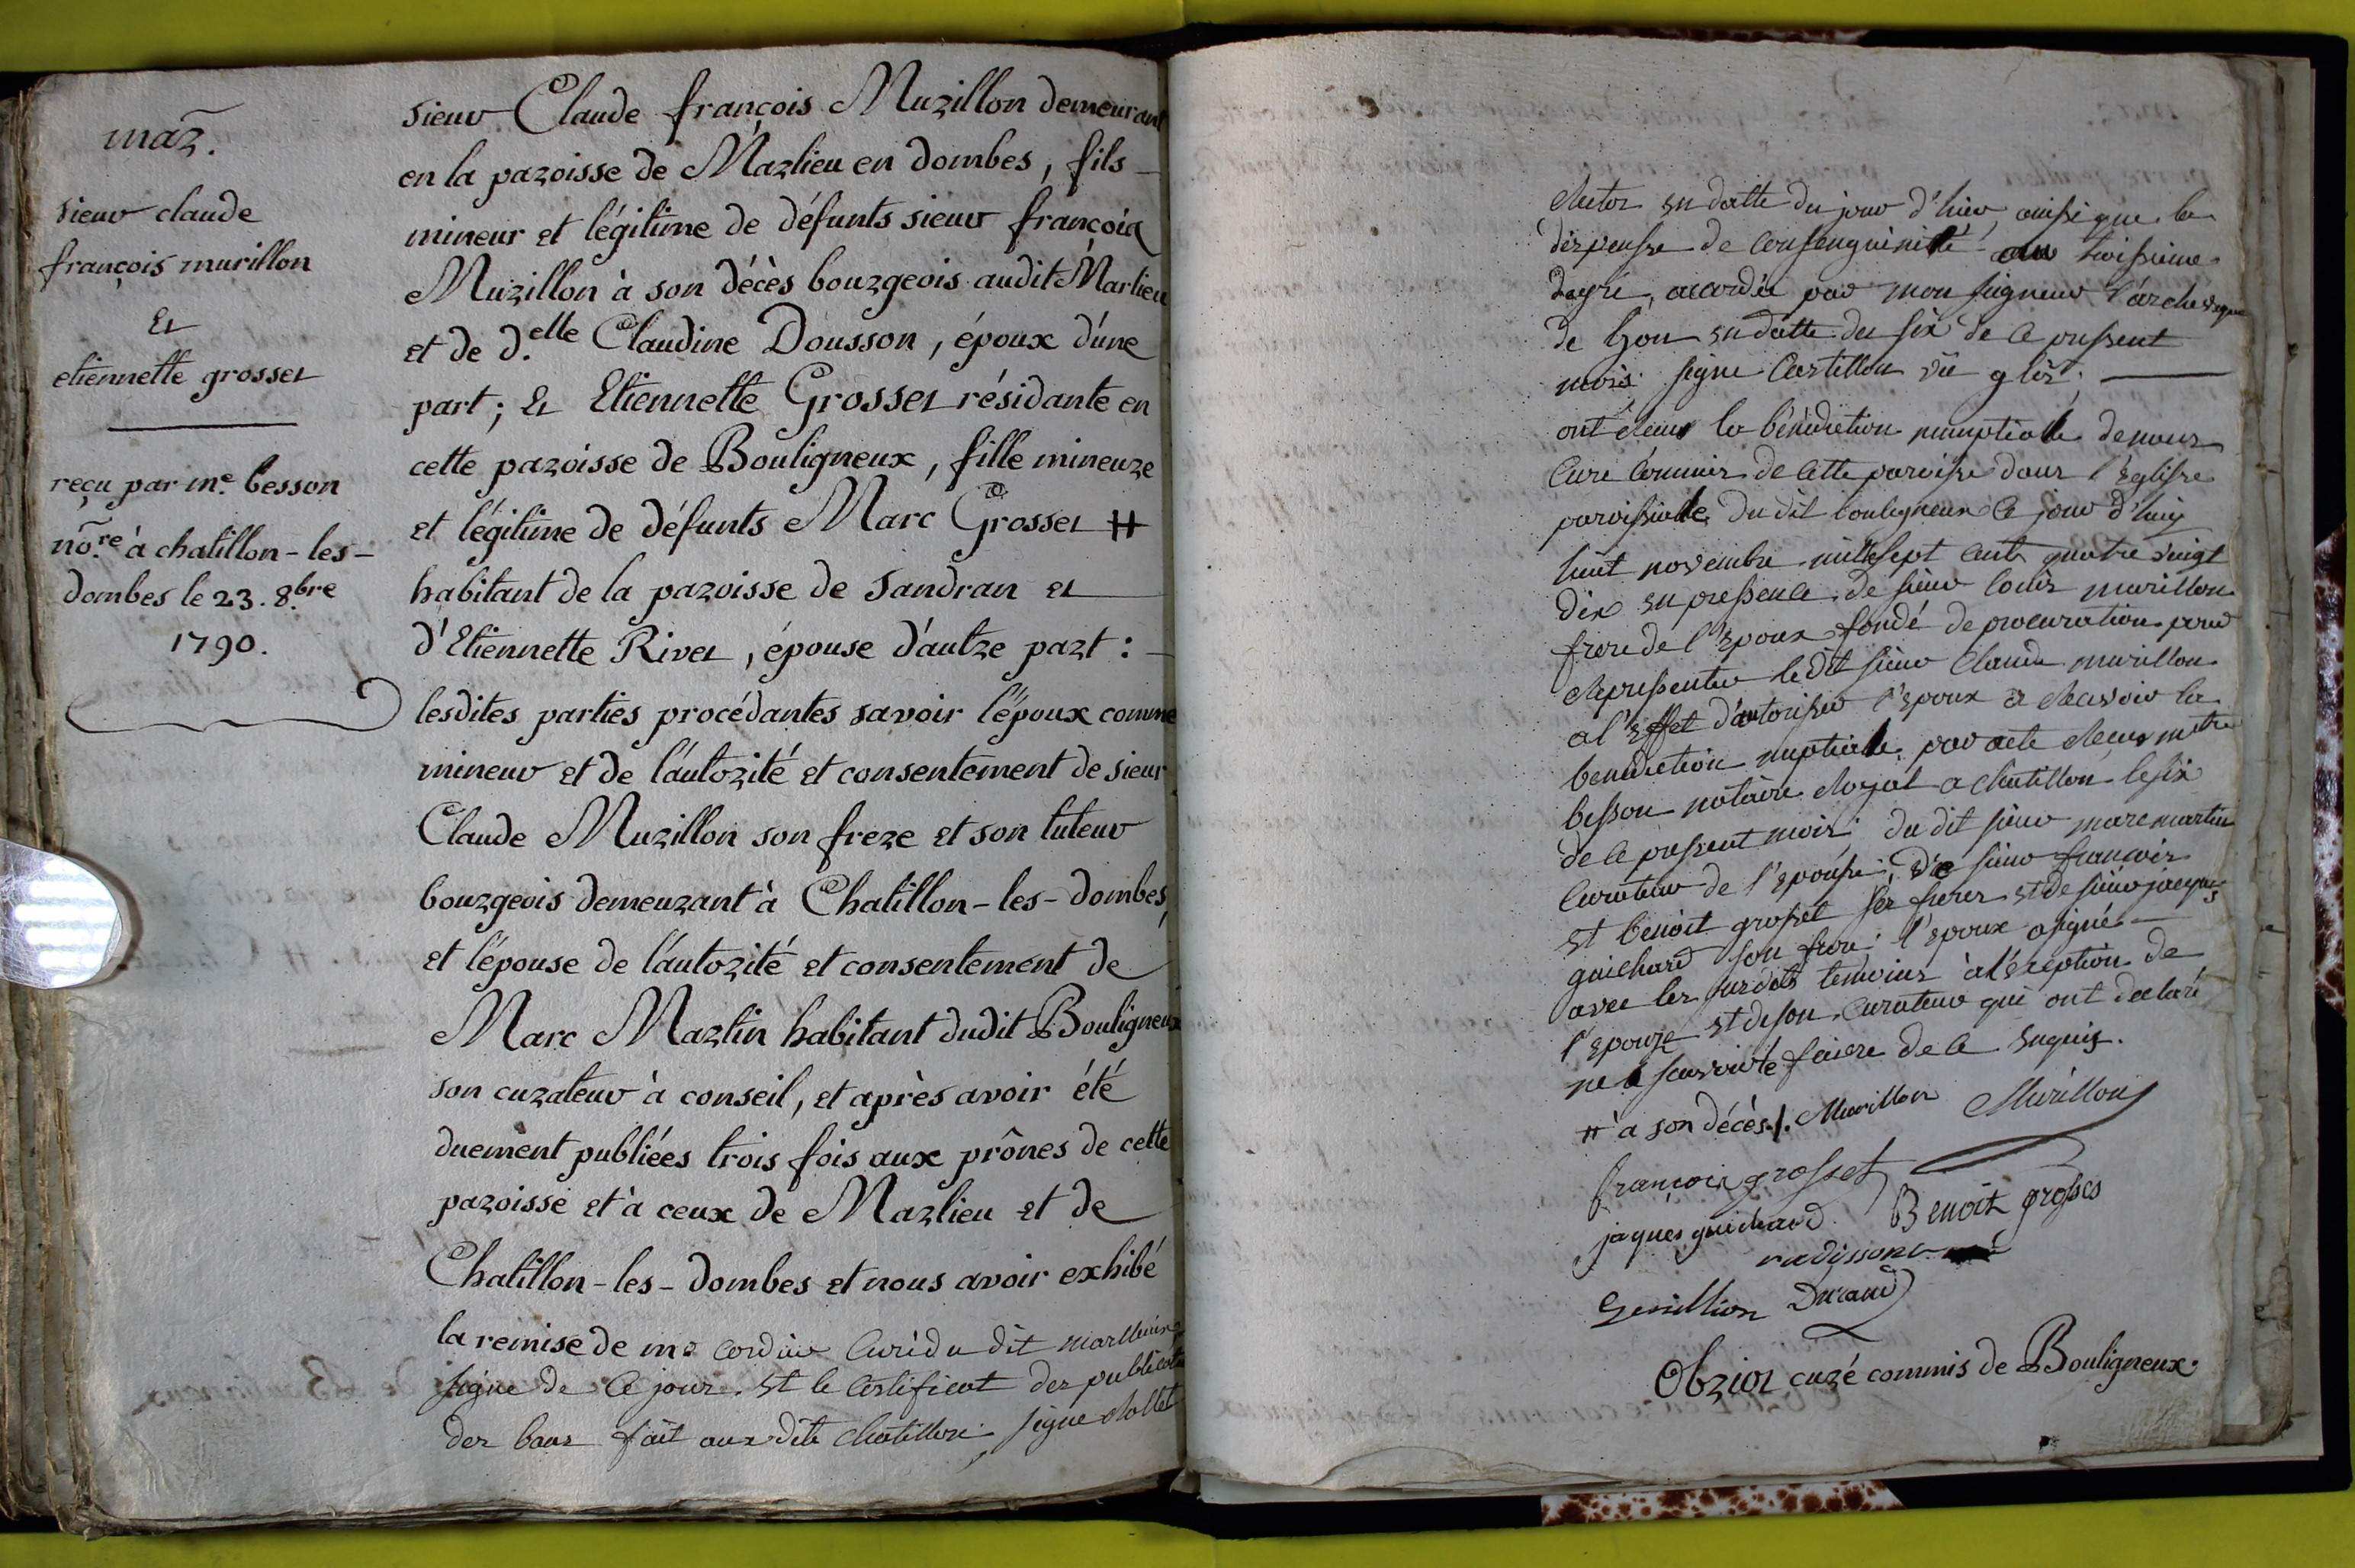 mar.
sieur claude
françois murillon
Et
etiennette grosset
reçu par me. besson
nore. à chatillon-les-
dombes le 23. 8bre
1790.
sieur Claude françois Murillon demeurant
en la paroisse de Marlieu en dombes, fils
mineur et légitime de défunts sieur françois
Murillon à son décès bourgeois audit Marlieu
et de d.elle Claudine Dousson, époux d'une
part; Et Etiennette Grosset résidante en
cette paroisse de Bouligneux, fille mineure
et légitime de défunts Marc Grosset #
habitant de la paroisse de Sandran et
d'Etiennette Rivet, épouse d'autre part :
lesdites parties procédantes savoir l'époux comme
mineur et de l'autorité et consentement de sieur
Claude Murillon son frere et son tuteur
bourgeois demeurant à Chatillon-les-dombes,
et l'épouse de l'autorité et consentement de
Marc Martin habitant dudit Bouligneux
son curateur à conseil, et après avoir été
duement publiées trois fois aux prônes de cette
paroisse et à ceux de Marlieu et de
Chatillon-les-dombes et nous avoir exhibé
la remise de me cordier Curé du dit marlieu
signe de ce jour. et le certificat des publicat
des bans fait aux dite chatillon signe
en datte du jour d'hier ainsi que la
dispense de consenguinité au troisieme
degré, accordée par mon seigneur l'archeveque
de lyon en datte du six de ce present
mois. signe Castillon
ont reçus la bénédiction nuuptiale de nous
Curé Commis de cette paroisse dans l'Eglisse
paroissialle du dit bouligneux ce jour d'huy
huit novembre mil sept cent quatre vingt
dix en presence de sieur louis murillon
frere de l'epoux fondé de procuration pour
representer le dit sieur Claude murillon
a l'effet d'autoriser l'epoux a recevoir la
benediction nuptialle par acte reçus mtre
besson notaire royal a chatillon le six
de ce present mois; du dit sieur marc martin
Curateur de l'epouse; de sieur françois
et benoit grosset ses freres et de sieur jacques
guichard son frere. l'epoux a signé
avec les susdits temoins à l'exeption de
l'epouze et de son Curateur qui ont declaré
ne le scavoir faire de ce enquis.
# à son décès /. Murillon Murillon
françois grosset
jaques guichard. Benoit grosset
radisson
Genillion Durand
Obriot curé commis de Bouligneux.